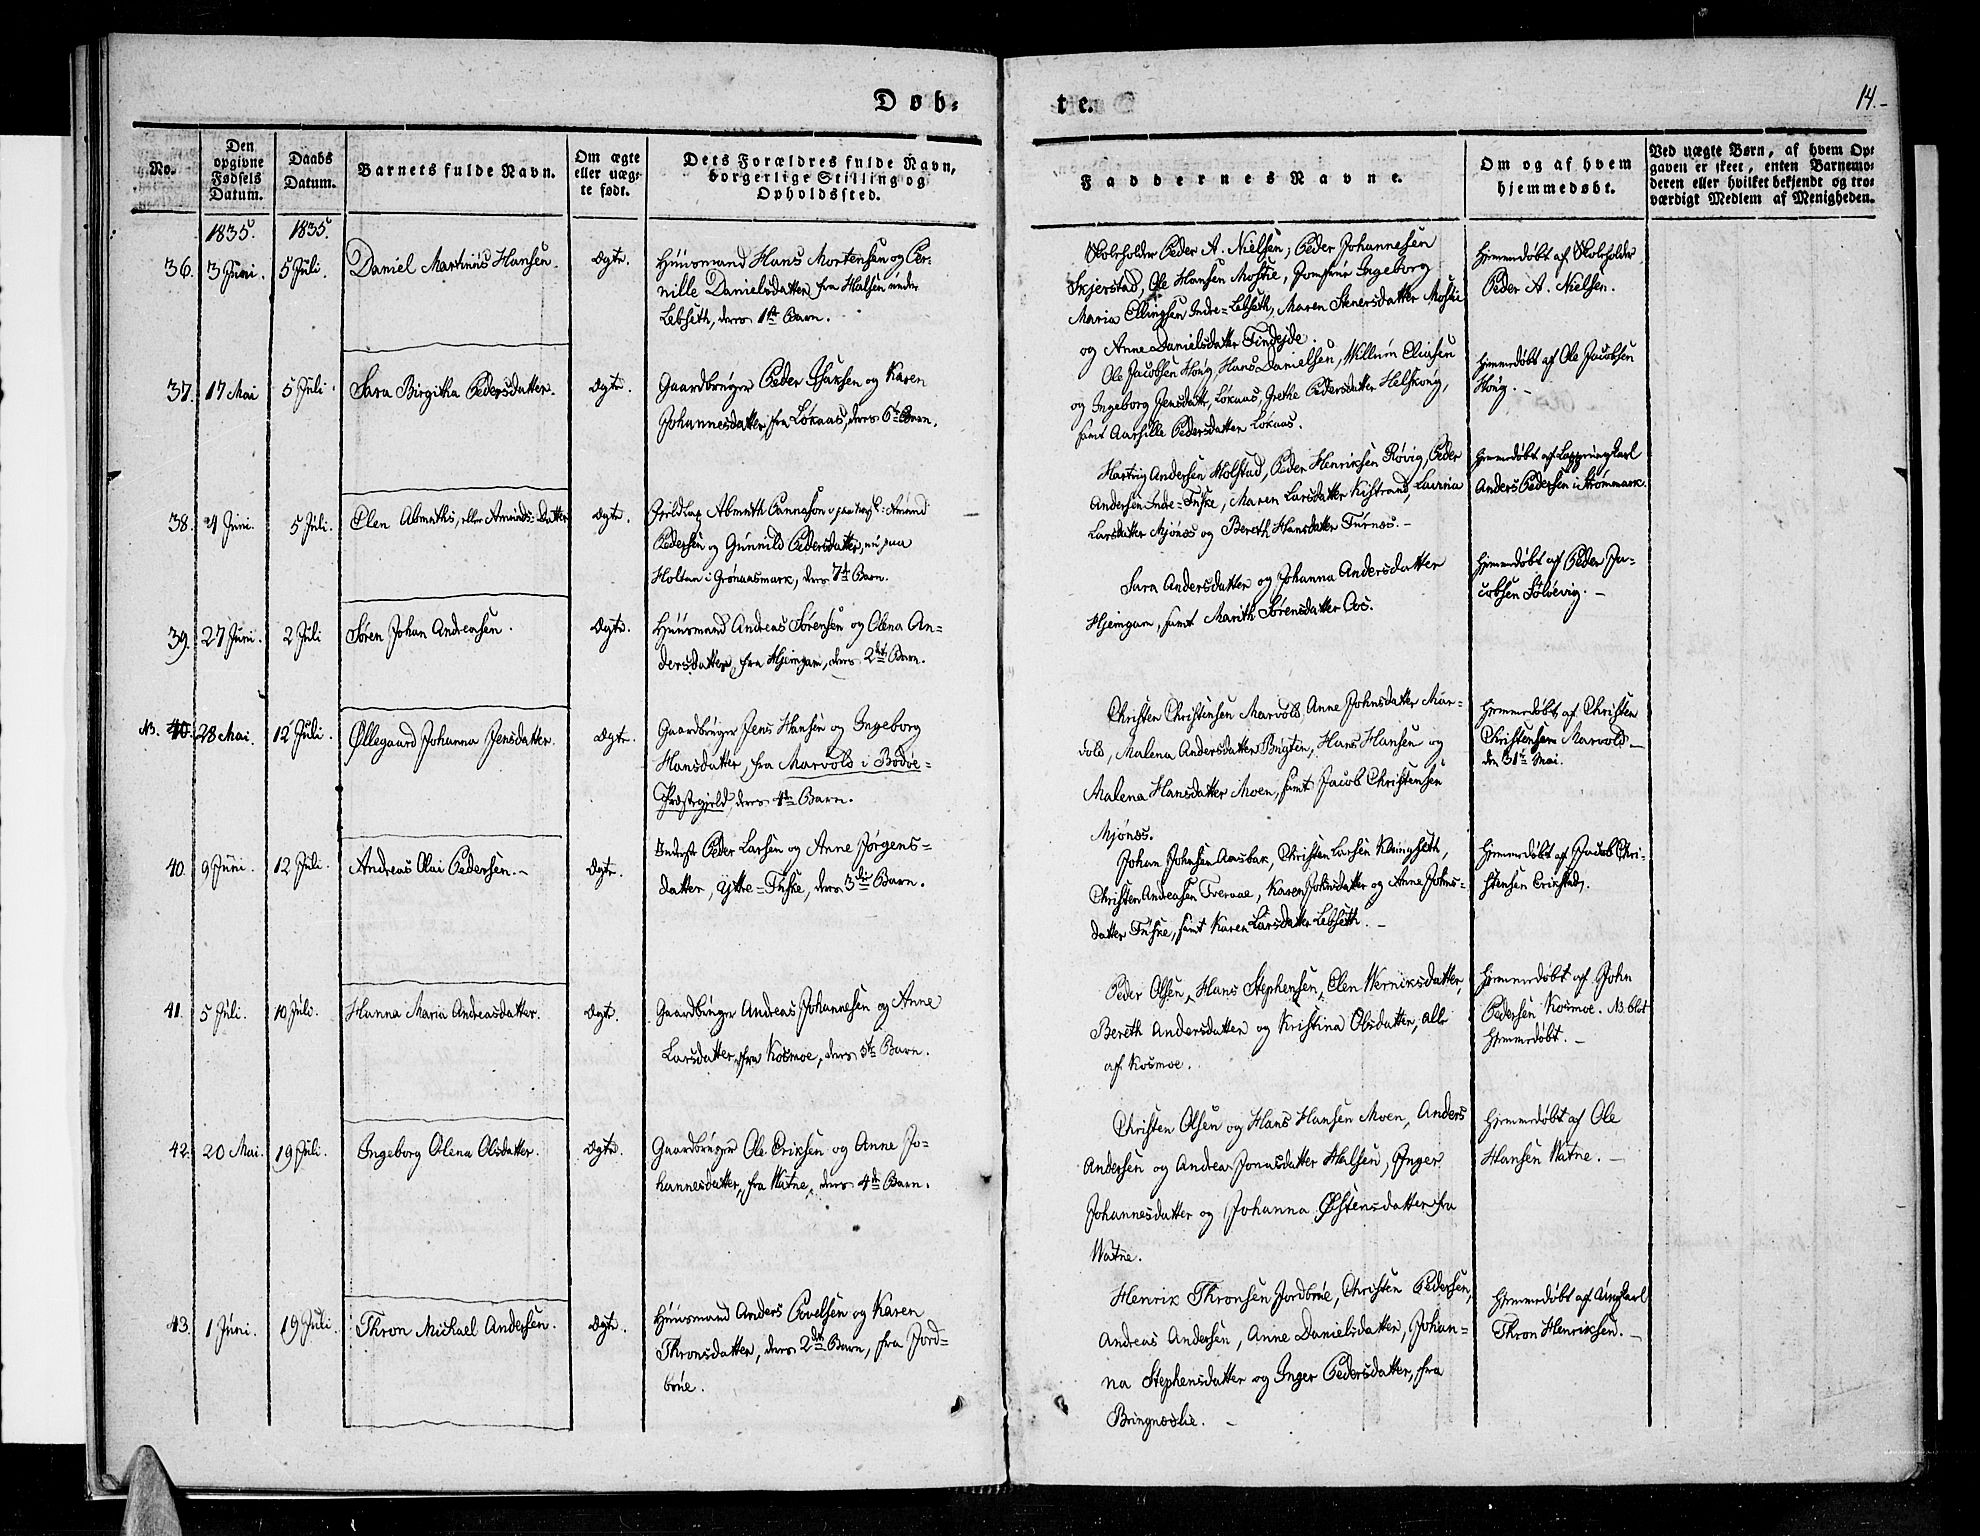 Døb-
te.
14.-
No.
Den
opgivne
Fødsels
Datum.
Daabs
Datum.
Barnets fulde Navn.
Om ægte
eller uæg-
te født.
Dets Forældres fulde Navn,
borgerlige Stilling og
Opholdssted.
Faddernes Navne.
Om og af hvem
hjemmedøbt.
Ved uægte Børn, af hvem Op-
gaven er skeet, enten Barnemo-
deren eller hvilket bekjendt og tro-
værdigt Medlem af Menigheden.
1835.
1835.
36.
3 Juni.
5 Juli.
Daniel Martinus Hansen.
Ægte.
Huusmand Hans Mortensen og Per-
nille Danielsdatter fra Halsen under
Lebseth, deres 1ste Barn.
Skolholder Peder A. Nielsen, Peder Johannesen
Skjerstad, Ole Hansen Moskie, Jomfrue Ingeborg
Maria Ellingsen Indre-Lebseth, Maren Stenersdatter Moskie
og Anne Danielsdatter Findejde.
Hjemmedøbt af Skolholder
Peder A. Nielsen.
37.
17 Mai
5 Juli.
Sara Birgitha Pedersdatter.
Ægte.
Gaardbruger Peder Isaksen og Karen
Johannesdatter fra Løkaas, deres 6te Barn.
Ole Jacobsen Høug, Hans Danielsen, Willum Eliasen
og Ingeborg Jensdatt, Løkaas, Grethe Pedersdatter Helskong,
samt Aarsille Pedersdatter Løkaas.
Hjemmedøbt af Ole Jacobsen
Høug.-
38.
4 Juni.
5 Juli.
Elen Abmuths, eller Amunds-Datter
Ægte.
Fjeldlap Abmuth Cannason Amund
Pedersen og Gunnild Pedersdatter, nu paa
Holten i Grønaasmark, deres 7de Barn.
Hartvig Andersen Holstad, Peder Henriksen Røvig, Peder
Andersen Indre-Fuske, Maren Larsdatter Kistrand, Lavina
Larsdatter Mjønes og Bereth Hansdatter Furnes.-
Hjemmedøbt af Lappeungkarl
Anders Pedersen i Strommark.
39.
27 Juni.
2 Juli
Søren Johan Andreasen.
Ægte.
Huusmand Andreas Sørensen og Olena An-
dersdatter, fra Hjemgam, deres 2det Barn.
Sara Andersdatter og Johanna Andersdatter
Hjemgam, samt Marith Sørensdatter Oos.
Hjemmedøbt af Peder Ja-
cobsen Sølvevig.-
NB. 40.
28 Mai.
12 Juli.
Øllegaard Johanna Jensdatter.
Ægte.
Gaardbruger Jens Hansen og Ingeborg
Hansdatter, fra Marvold i Bodøe-
Præstegjeld, deres 4de Barn.
Christen Christensen Marvold, Anne Johnsdatter Mar-
vold, Malena Andersdatter Bugten, Hans Hansen og
Malena Hansdatter Moen, samt Jacob Christensen
Mjønes.
Hjemmedøbt af Christen
Christensen Marvold
den 31te Mai.
40.
9 Juni.
12 Juli.
Andreas Olai Pedersen.-
Ægte.
Inderst Peder Larsen og Anne Jørgens-
datter, Ytte-Fuske, deres 3die Barn.
Johan Johnsen Aasbak, Christen Larsen Klungseth,
Christen Andreasen Tveraae, Karen Johnsdatter og Anne Johns-
datter Fuske, samt Karen Larsdatter Lebseth.-
Hjemmedøbt af Jacob Chri-
stensen Erikstad.
41.
5 Juli.
10 Juli.
Hanna Maria Andreasdatter.
Ægte.
Gaardbruger Andreas Johannesen og Anne
Larsdatter fra Kosmoe, deres 5te Barn.
Peder Olsen, Hans Stephensen, Elen Werniksdatter,
Bereth Andersdatter og Kristina Olsdatter, alle
af Kosmoe.
Hjemmedøbt af John
Pedersen Kosmoe. NB. blot
Hjemmedøbt.-
42.
20 Mai.
19 Juli.
Ingeborg Olena Olsdatter.
Ægte.
Gaardbruger Ole Eriksen og Anne Jo-
hannesdatter, fra Watne, deres 4de Barn.
Christen Olsen og Hans Hansen Moen, Anders
Andersen og Andrea Jonasdatter Halsen, Inger
Johannesdatter og Johanna Østensdatter fra
Watne.
Hjemmedøbt af Ole
Hansen Watne.-
43.
1 Juni.
19 Juli.
Thron Michael Andersen.
Ægte.
Huusmand Anders Povelsen og Karen
Thronsdatter, deres 2det Barn, fra Jord-
brue.
Henrik Thronsen Jordbrue, Christen Pedersen,
Andreas Andersen, Anne Danielsdatter, Johan-
na Stephensdatter og Inger Pedersdatter, fra
Bringneslie.-
Hjemmedøbt af Ungkarl
Thron Henriksen.-